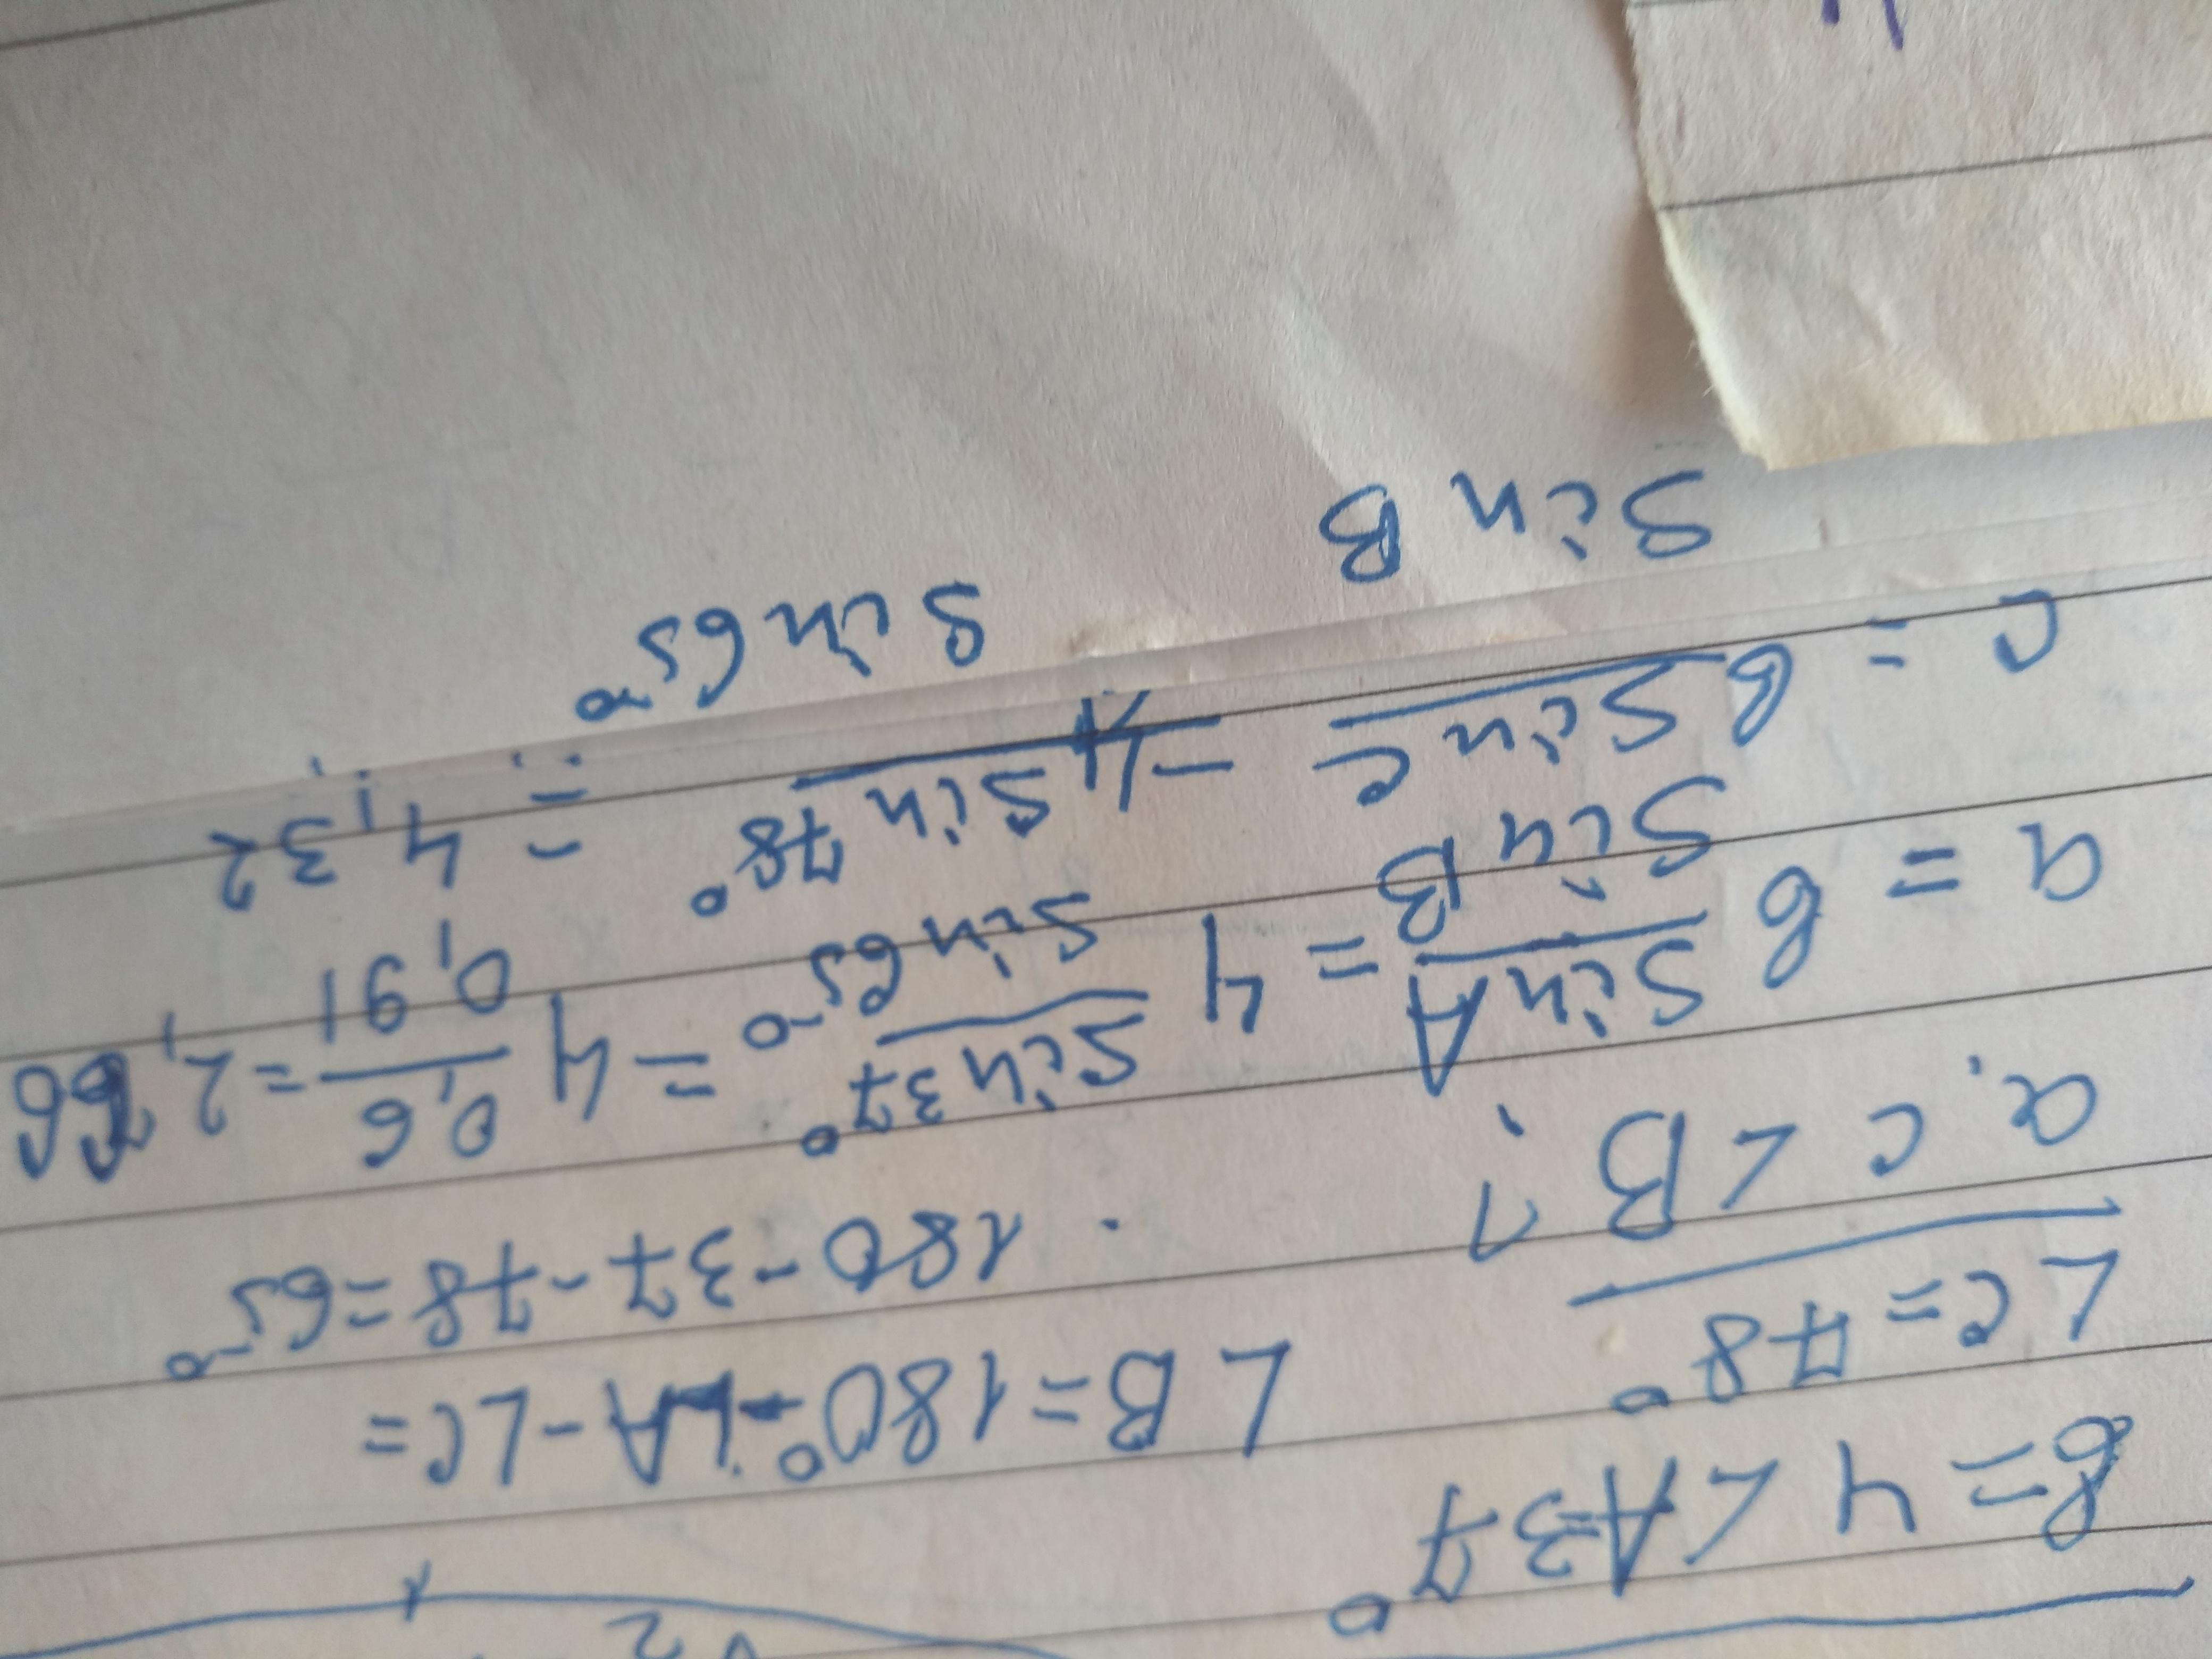 b=4 ∠A37°
∠C=78°
a, c ∠B?
∠B=180°-∠A-∠C=
180-37-78=65°
a = b sin A / sin B = 4 sin 37° / sin 65° = 4 0,6 / 0,91 = 2,66
c = b sin C / sin B = 4 sin 78° / sin 65° = 4,32